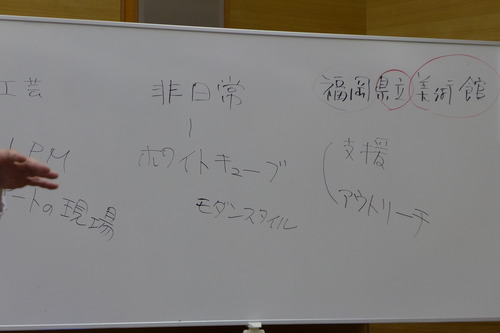 工芸
LPM
ートの現場
非日常
ホワイトキューブ
モダンスタイル
福岡県立美術館
支援
アウトリーチ